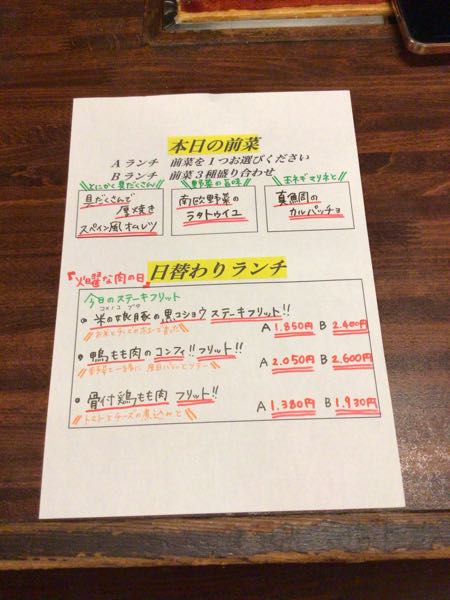 本日の前菜
Aランチ 前菜を1つお選びください
Bランチ 前菜3種盛り合わせ
とにかく具だくさん
具だくさんで
厚焼き
スペイン風オムレツ
野菜の旨味
南欧野菜の
ラタトゥイユ
玉ネギマリネと
真鯛の
カルパッチョ
『火曜な肉の日』
日替わりランチ
今日のステーキフリット
コメノコ ブタ
• 米の娘豚の黒コショウ ステーキフリット!!
A 1.850円 B 2.400円
• 鴨もも肉のコンフィ!!フリット!!
A 2.050円 B 2.600円
• 骨付鶏もも肉 フリット!!
トマトとチーズの煮込みと
A 1.380円 B 1.930円